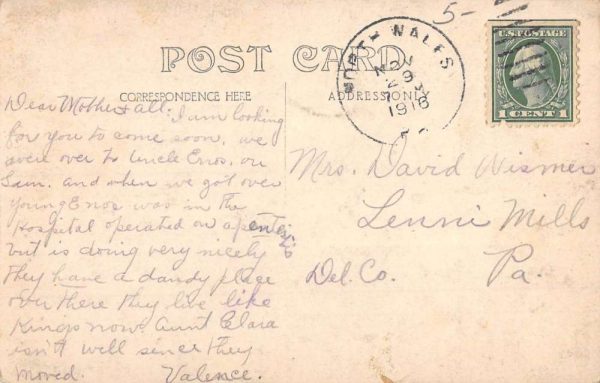 5-
POST CARD
CORRESPONDENCE HERE
ADDRESS ONLY
NORTH WALES
NOV
1916
U.S. POSTAGE
1 CENT 1
Dear Mother & all. I am looking
for you to come soon. we
were over to Uncle Enos. on
Sun. and when we got over
young Enos was in the
Hospital operated on
but is doing very nicely
they have a dandy place
over there they live like
Kings now. Aunt Clara
isn't well since they
moved. Valence.
Mrs. David Wismer
Lenni Mills
Del. Co. Pa.